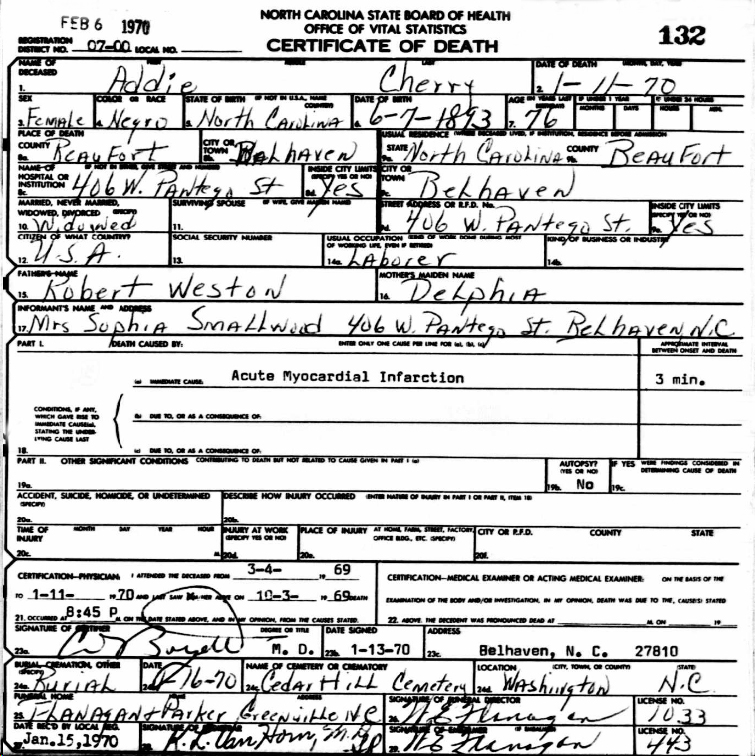 FEB 6 1970
NORTH CAROLINA STATE BOARD OF HEALTH
OFFICE OF VITAL STATISTICS
CERTIFICATE OF DEATH
132
REGISTRATION DISTRICT NO. 07-00 LOCAL NO.
NAME OF DECEASED FIRST MIDDLE LAST DATE OF DEATH MONTH, DAY, YEAR
1. Addie Cherry 2. 1-11-70
SEX COLOR OR RACE STATE OF BIRTH (IF NOT IN U.S.A., NAME COUNTRY) DATE OF BIRTH AGE (IN YEARS LAST BIRTHDAY) IF UNDER 1 YEAR IF UNDER 24 HOURS
MONTHS DAYS HOURS MIN.
3. Female 4. Negro 5. North Carolina 6. 6-7-1893 7. 76
PLACE OF DEATH CITY OR TOWN USUAL RESIDENCE (WHERE DECEASED LIVED, IF INSTITUTION, RESIDENCE BEFORE ADMISSION
COUNTY Beaufort Belhaven STATE North Carolina COUNTY Beaufort
8a. 8b. 9a. 9b.
NAME OF HOSPITAL OR INSTITUTION (IF NOT IN EITHER, GIVE STREET AND NUMBER) INSIDE CITY LIMITS (SPECIFY YES OR NO) CITY OR TOWN
8c. 406 W. Pantego St 8d. Yes 9c. Belhaven
MARRIED, NEVER MARRIED, WIDOWED, DIVORCED (SPECIFY) SURVIVING SPOUSE (IF WIFE, GIVE MAIDEN NAME) STREET ADDRESS OR R.F.D. No. INSIDE CITY LIMITS (SPECIFY YES OR NO)
10. Widowed 11. 9d. 406 W. Pantego St. 9e. Yes
CITIZEN OF WHAT COUNTRY? SOCIAL SECURITY NUMBER USUAL OCCUPATION (KIND OF WORK DONE DURING MOST OF WORKING LIFE, EVEN IF RETIRED) KIND OF BUSINESS OR INDUSTRY
12. U.S.A. 13. 14a. Laborer 14b.
FATHER'S NAME MOTHER'S MAIDEN NAME
15. Robert Weston 16. Delphia
INFORMANT'S NAME AND ADDRESS
17. Mrs Sophia Smallwood 406 W. Pantego St. Belhaven, N.C
PART I. DEATH CAUSED BY: ENTER ONLY ONE CAUSE PER LINE FOR (a), (b), (c) APPROXIMATE INTERVAL BETWEEN ONSET AND DEATH
(a) IMMEDIATE CAUSE: Acute Myocardial Infarction 3 min.
CONDITIONS, IF ANY, WHICH GAVE RISE TO IMMEDIATE CAUSE(a), STATING THE UNDERLYING CAUSE LAST
(b) DUE TO, OR AS A CONSEQUENCE OF:
18. (c) DUE TO, OR AS A CONSEQUENCE OF:
PART II. OTHER SIGNIFICANT CONDITIONS CONTRIBUTING TO DEATH BUT NOT RELATED TO CAUSE GIVEN IN PART I (a) AUTOPSY? (YES OR NO) IF YES WERE FINDINGS CONSIDERED IN DETERMINING CAUSE OF DEATH
19a. 19b. No 19c.
ACCIDENT, SUICIDE, HOMICIDE, OR UNDETERMINED (SPECIFY) DESCRIBE HOW INJURY OCCURRED (ENTER NATURE OF INJURY IN PART I OR PART II, ITEM 18)
20a. 20b.
TIME OF INJURY MONTH DAY YEAR HOUR INJURY AT WORK (SPECIFY YES OR NO) PLACE OF INJURY AT HOME, FARM, STREET, FACTORY, OFFICE BLDG., ETC. (SPECIFY) CITY OR R.F.D. COUNTY STATE
20c. M. 20d. 20e. 20f.
CERTIFICATION—PHYSICIAN: I ATTENDED THE DECEASED FROM 3-4- 19 69 CERTIFICATION—MEDICAL EXAMINER OR ACTING MEDICAL EXAMINER: ON THE BASIS OF THE
TO 1-11- 19 70 AND LAST SAW HER ALIVE ON 10-3- 19 69 DEATH EXAMINATION OF THE BODY AND/OR INVESTIGATION, IN MY OPINION, DEATH WAS DUE TO THE, CAUSE(S) STATED
21. OCCURRED AT 8:45 P M. ON THE DATE STATED ABOVE, AND IN MY OPINION, FROM THE CAUSES STATED 22. ABOVE. THE DECEDENT WAS PRONOUNCED DEAD AT M. ON 19
SIGNATURE OF CERTIFIER DEGREE OR TITLE DATE SIGNED ADDRESS
23a. M. D. 23b. 1-13-70 23c. Belhaven, N. C. 27810
BURIAL, CREMATION, OTHER (SPECIFY) DATE NAME OF CEMETERY OR CREMATORY LOCATION (CITY, TOWN, OR COUNTY) (STATE)
24a. Burial 24b. 1-16-70 24c. Cedar Hill Cemetery 24d. Washington N.C
FUNERAL HOME NAME ADDRESS SIGNATURE OF FUNERAL DIRECTOR LICENSE NO.
25. Flanagan & Parker Greenville N.C 26. W E Flanagan 1033
DATE REC'D BY LOCAL REG. SIGNATURE OF REGISTRAR SIGNATURE OF EMBALMER LICENSE NO.
27. Jan. 15, 1970 28. K. L. Van Horn, M.D. 29. W E Flanagan 1443